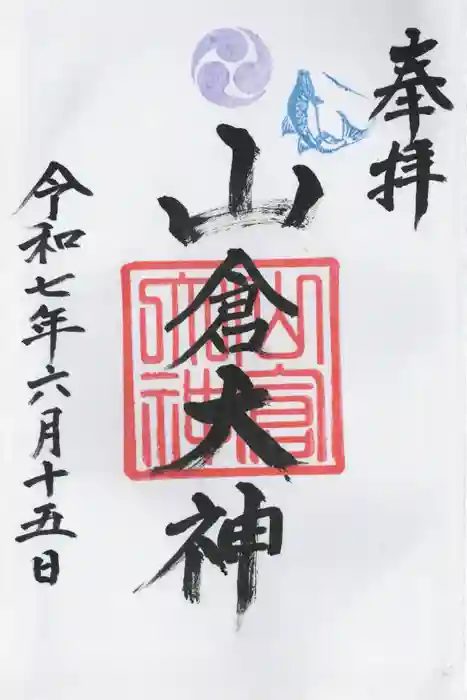 奉拝
山倉大神
山倉大神
令和七年六月十五日